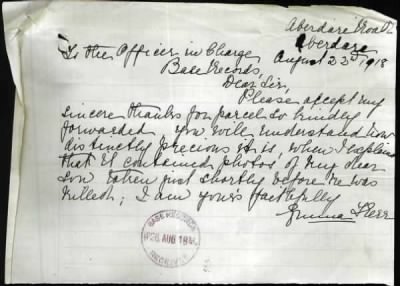 Aberdare Road
Aberdare
August 22nd 1918
To the Officer in Charge
Base Records,
Dear Sir,
Please accept my
sincere thanks for parcel so kindly
forwarded you will understand how
distinctly precious it is, when I explain
that it contained photos of my dear
son taken just shortly before he was
killed; I am yours faithfully
Emma
BASE RECORDS
26 AUG 1918
RECEIVED